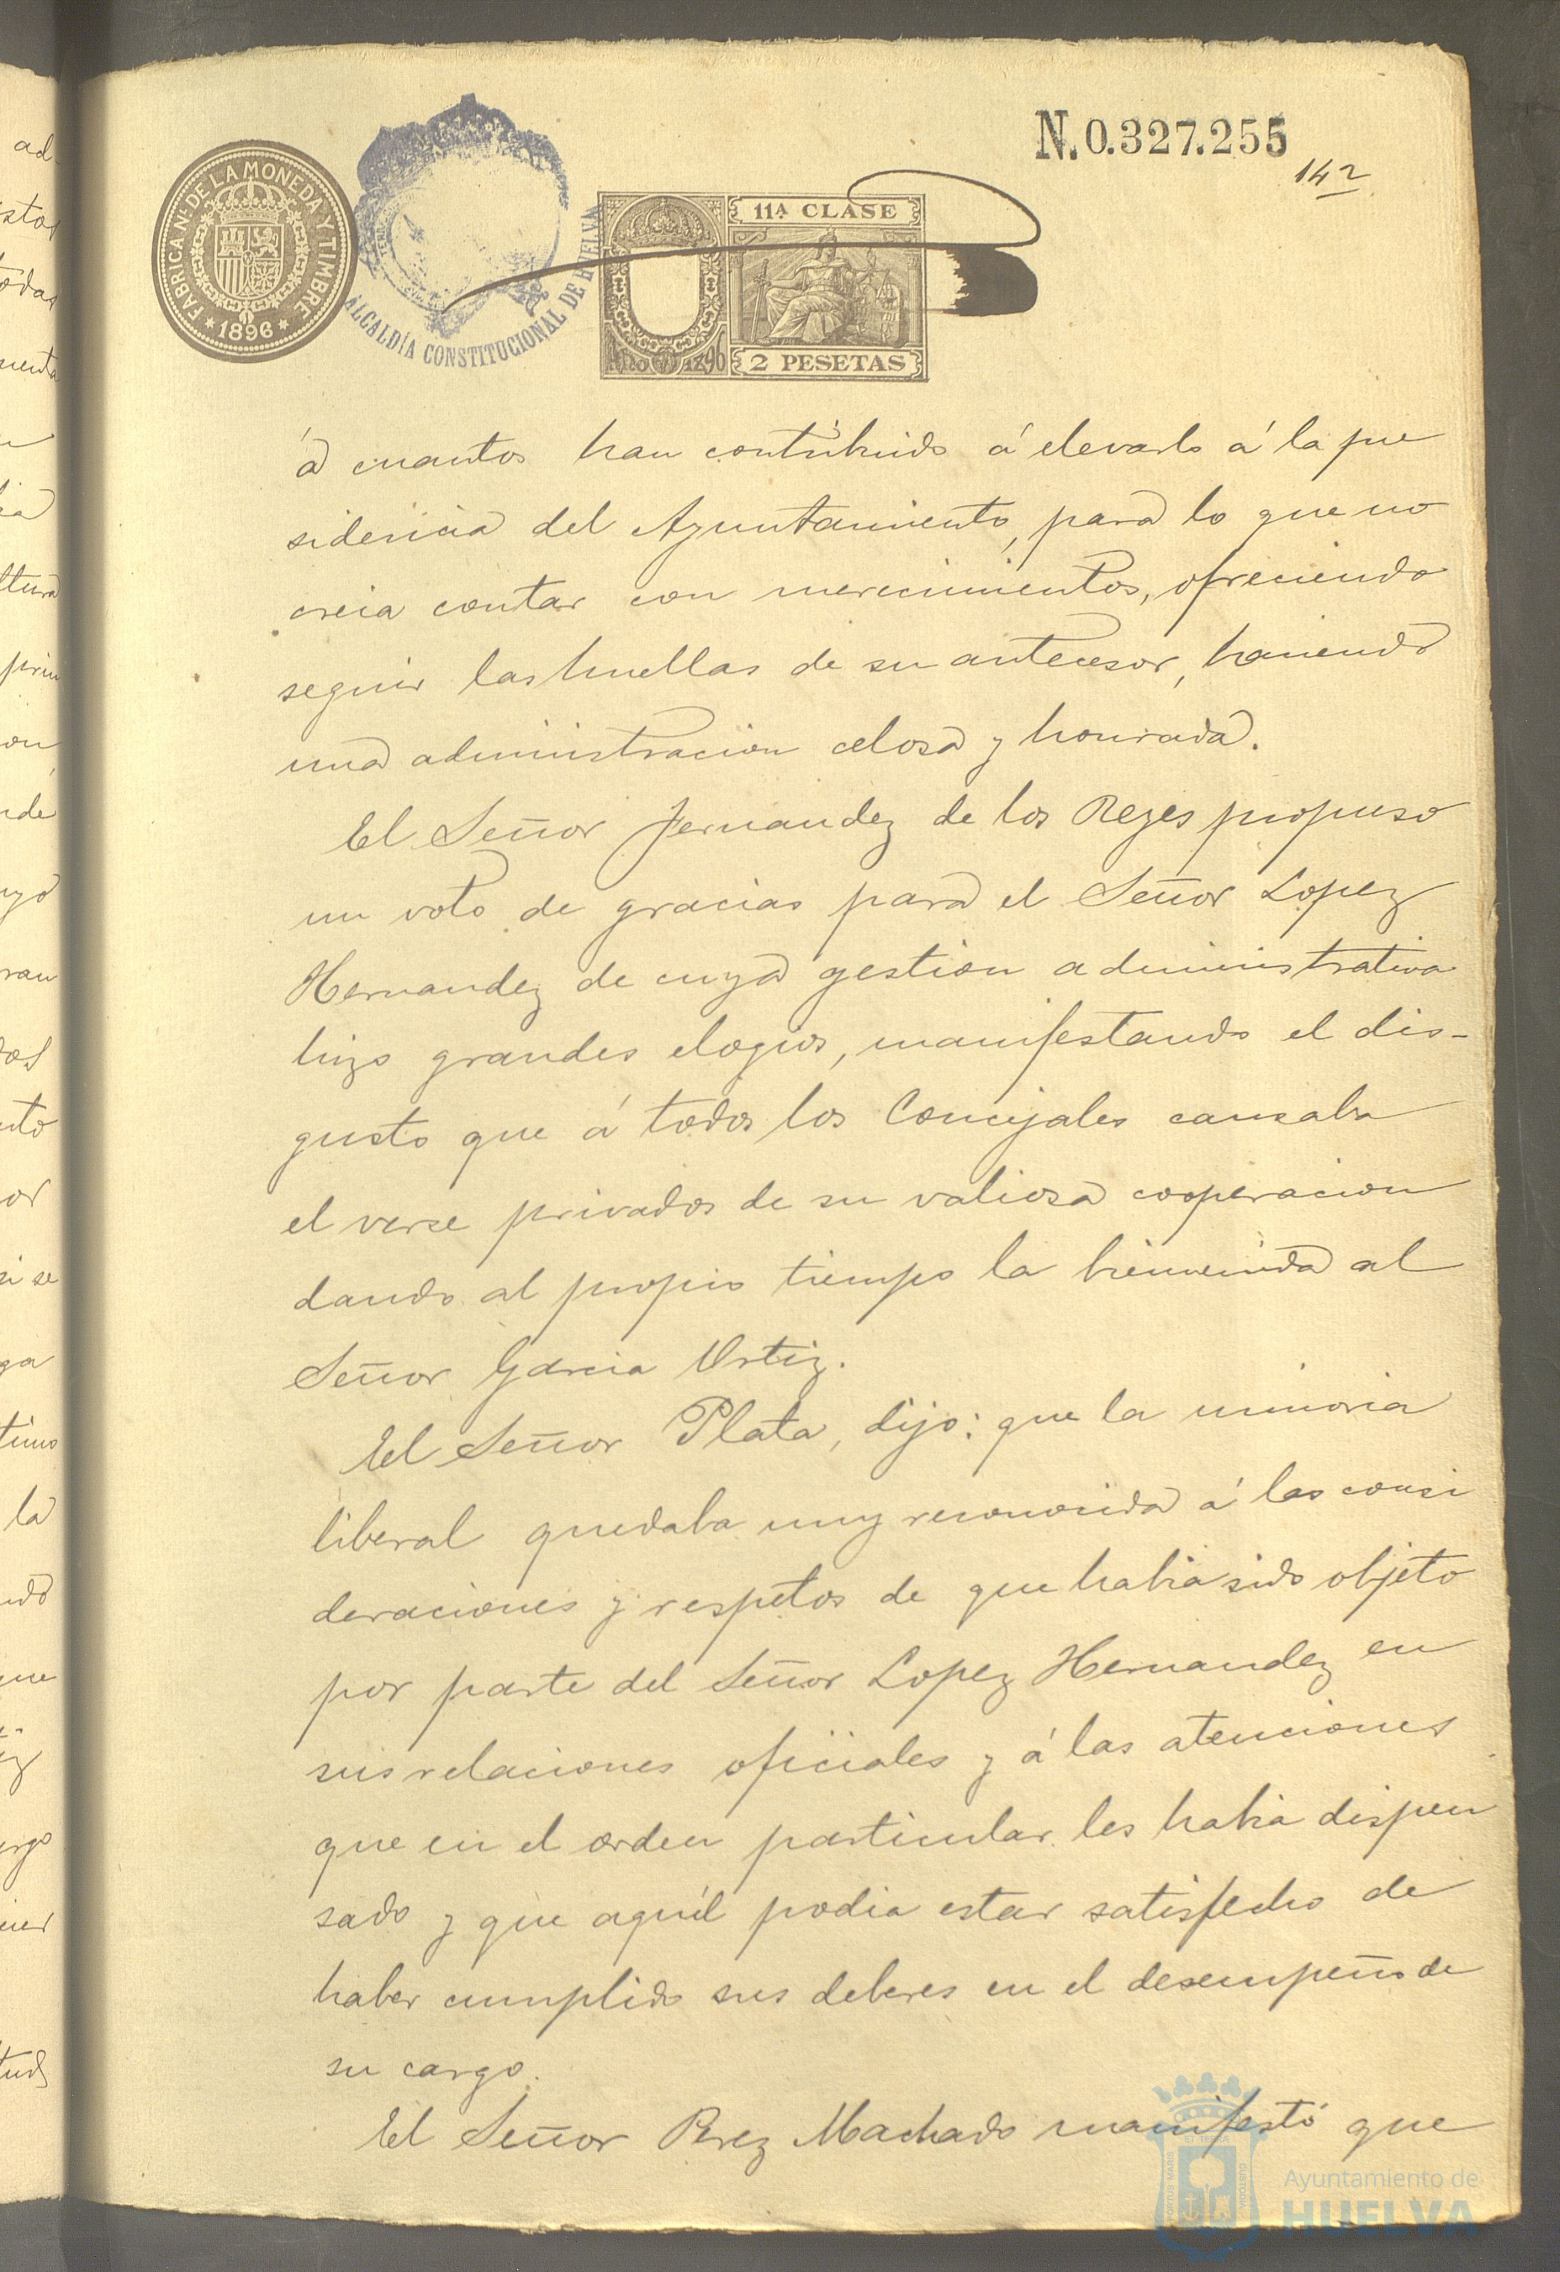 N.0.327.255
142
FABRICA Nˡ DE LA MONEDA Y TIMBRE
* 1896 *
ALCALDÍA CONSTITUCIONAL DE HUELVA
11ª CLASE
Año de 1896
2 PESETAS
á cuantos han contribuido á elevarlo á la pre
sidencia del Ayuntamiento, para lo que no
creia contar con merecimientos, ofreciendo
seguir las huellas de su antecesor, haciendo
una administracion celosa y honrada.
El Señor Fernandez de los Reyes propuso
un voto de gracias para el Señor Lopez
Hernandez de cuya gestion administrativa
hizo grandes elogios, manifestando el dis-
gusto que á todos los Concejales causaba
el verse privados de su valiosa cooperacion
dando al propio tiempo la bienvenida al
Señor Garcia Ortiz.
El Señor Plata, dijo: que la minoria
liberal quedaba muy reconocida á las consi
deraciones y respetos de que habia sido objeto
por parte del Señor Lopez Hernandez en
sus relaciones oficiales y á las atenciones
que en el orden particular les habia dispen
sado y que aquél podia estar satisfecho de
haber cumplido sus deberes en el desempeño de
su cargo.
El Señor Perez Machado manifestó que
Ayuntamiento de
HUELVA